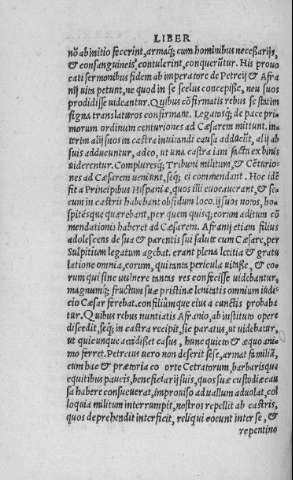 LIBER
nō ab initio fecerint, armaq́; cum hominibus necessarijs,
& consanguineis contulerint, conquerūtur. His prouo
cati sermonibus fidem ab imperatore de Petreij & Afra
nij uita petunt, ne quod in se scelus concepisse, neu suos
prodidisse uideantur. Quibus cōfirmatis rebus se statim
signa translaturos confirmant. Legatosq́; de pace pri=
morum ordinum centuriones ad Cæsarem mittunt. in=
terim alij suos in castra inuitandi causa adducūt, alij ab
suis adducuntur, adeo, ut una castra iam facta ex binis
uiderentur. Compluresq́; Tribuni militum, & Cēturio=
nes ad Cæsarem ueniunt, seq́; ei commendant. Hoc idē
fit a Principibus Hispaniæ, quos illi euocauerant, & se=
cum in castris habebant obsidum loco. ij suos notos, ho=
spitésque quærebant, per quem quisq; eorum aditum cō
mendationis haberet ad Cæsarem. Afranij etiam filius
adolescens de sua & parentis sui salute cum Cæsare, per
Sulpitium legatum agebat. erant plena lætitia & gratu
latione omnia, eorum, qui tanta pericula uitasse, & eo=
rum qui sine uulnere tantas res confecisse uidebantur,
magnumq́; fructum suæ pristinæ lenitatis omnium iudi=
cio Cæsar ferebat. consiliumque eius a cunctis probaba
tur. Quibus rebus nuntiatis Afranio, ab instituto opere
discedit, seq́; in castra recipit, sic paratus, ut uidebatur,
ut quicunque accidisset casus, hunc quieto & æquo ani=
mo ferret. Petreius uero non deserit sese, armat familiā,
cum hac & prætoria co orte Cetratorum, barbarisque
equitibus paucis, beneficiarijs suis, quos suæ custodiæ cau
sa habere consueuerat, improuiso ad uallum aduolat, col
loquia militum interrumpit, nostros repellit ab castris,
quos deprehendit interficit, reliqui cocunt inter se, &
repentino